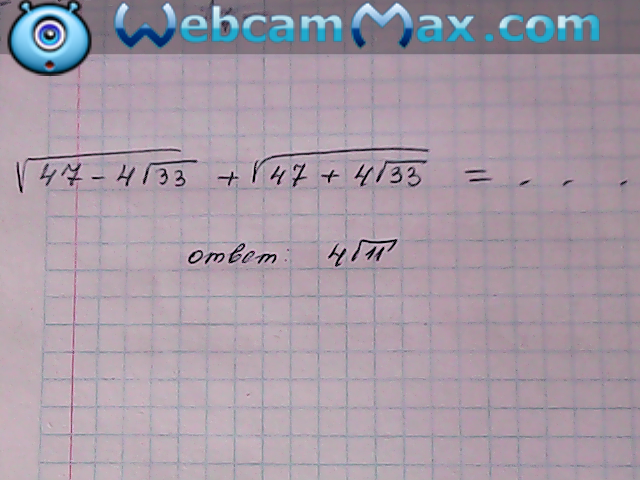 WebcamMax.com
√(47 - 4√33) + √(47 + 4√33) = . . .
ответ: 4√11